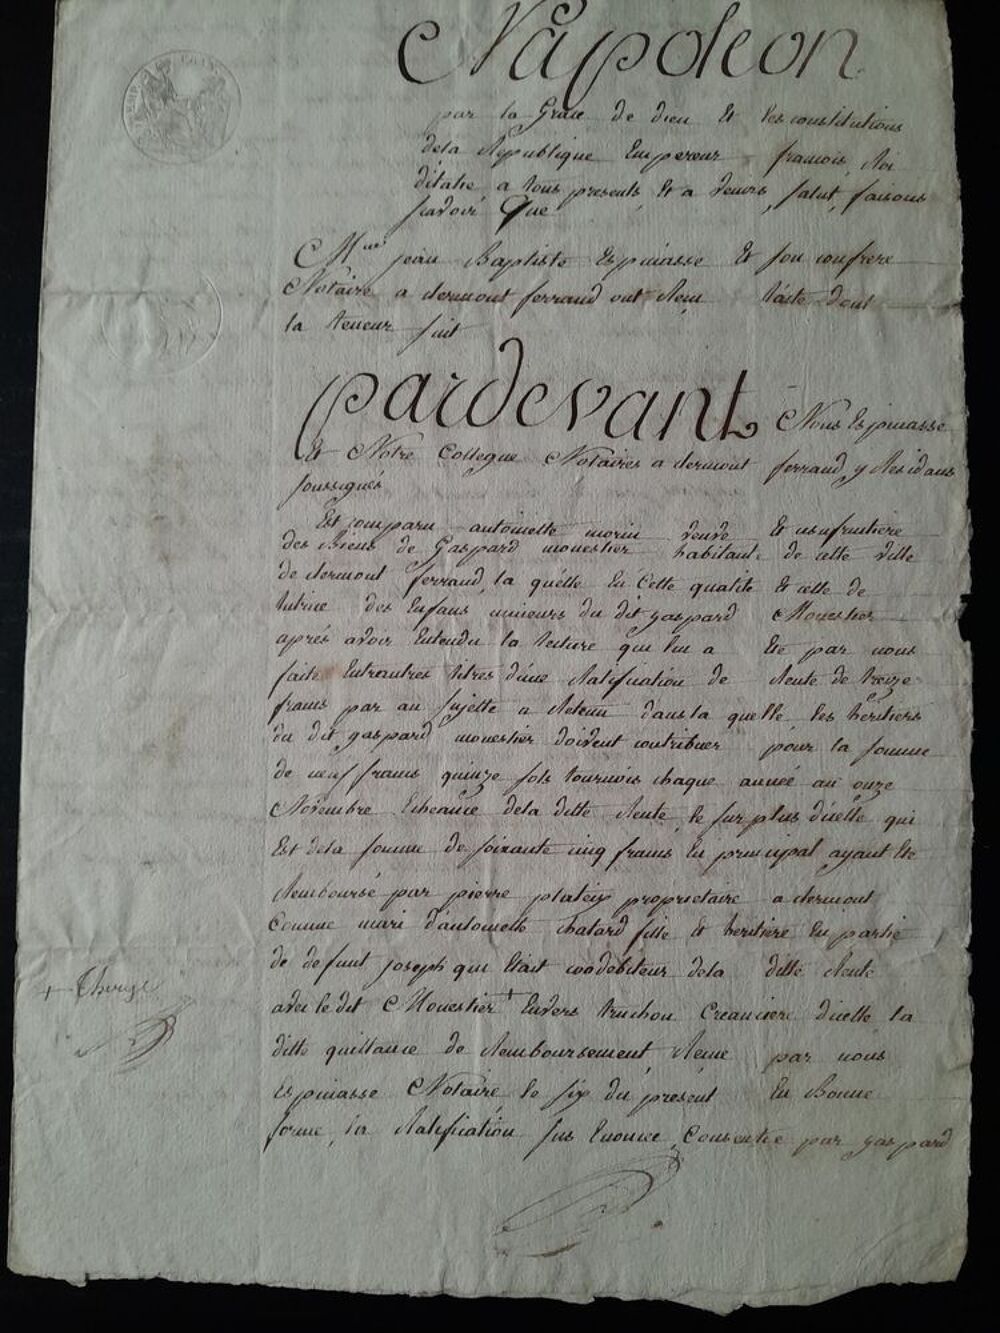 Napoleon
par la Grace de dieu Et les constitutions
dela Republique Empereur francois, Roi
ditalie a tous presents, Et a venirs, Salut, faisons
scavoir Que
Mres jean Baptiste Espinasse Et son confrere
Notaire a clermont ferrand ont Recu l'acte dont
la teneur suit
pardevant Nous Espinasse
Et Notre Collegue Notaires a clermont ferrand y Residans
soussignés
Est comparu antoinette morin veuve Et usufruitiere
des Biens de Gaspard monestier habitante de cette ville
de clermont ferrand, la quélle En Cette qualite Et celle de
tutrice des Enfans mineurs du dit gaspard Monestier
aprés avoir Entendu la lecture qui lui a Ete par nous
faite Entreautres titres d'une Ratification de Rente de treize
francs par an sujette a Retenu dans la quelle les héritiers
du dit gaspard monestier doivent contribuer pour la somme
de neuf francs quinze sols tournois chaque année au onze
Novembre Echeance dela ditte Rente, le surplus d'icelle qui
Est dela somme de soixante cinq francs En principal ayant Ete
Remboursé par pierre plateix proprietaire a clermont
Comme mari d'antoinette chatard fille Et heritiere En partie
de defunt joseph qui Etait codebiteur dela ditte Rente
avec le dit Monestier + Envers truchon Creanciere d'icelle la
ditte quittance de Remboursement Recue par nous
Espinasse Notaire le six du present En Bonne
forme, la Ratification sus Enoncée, Consentie par gaspard
+ Therese